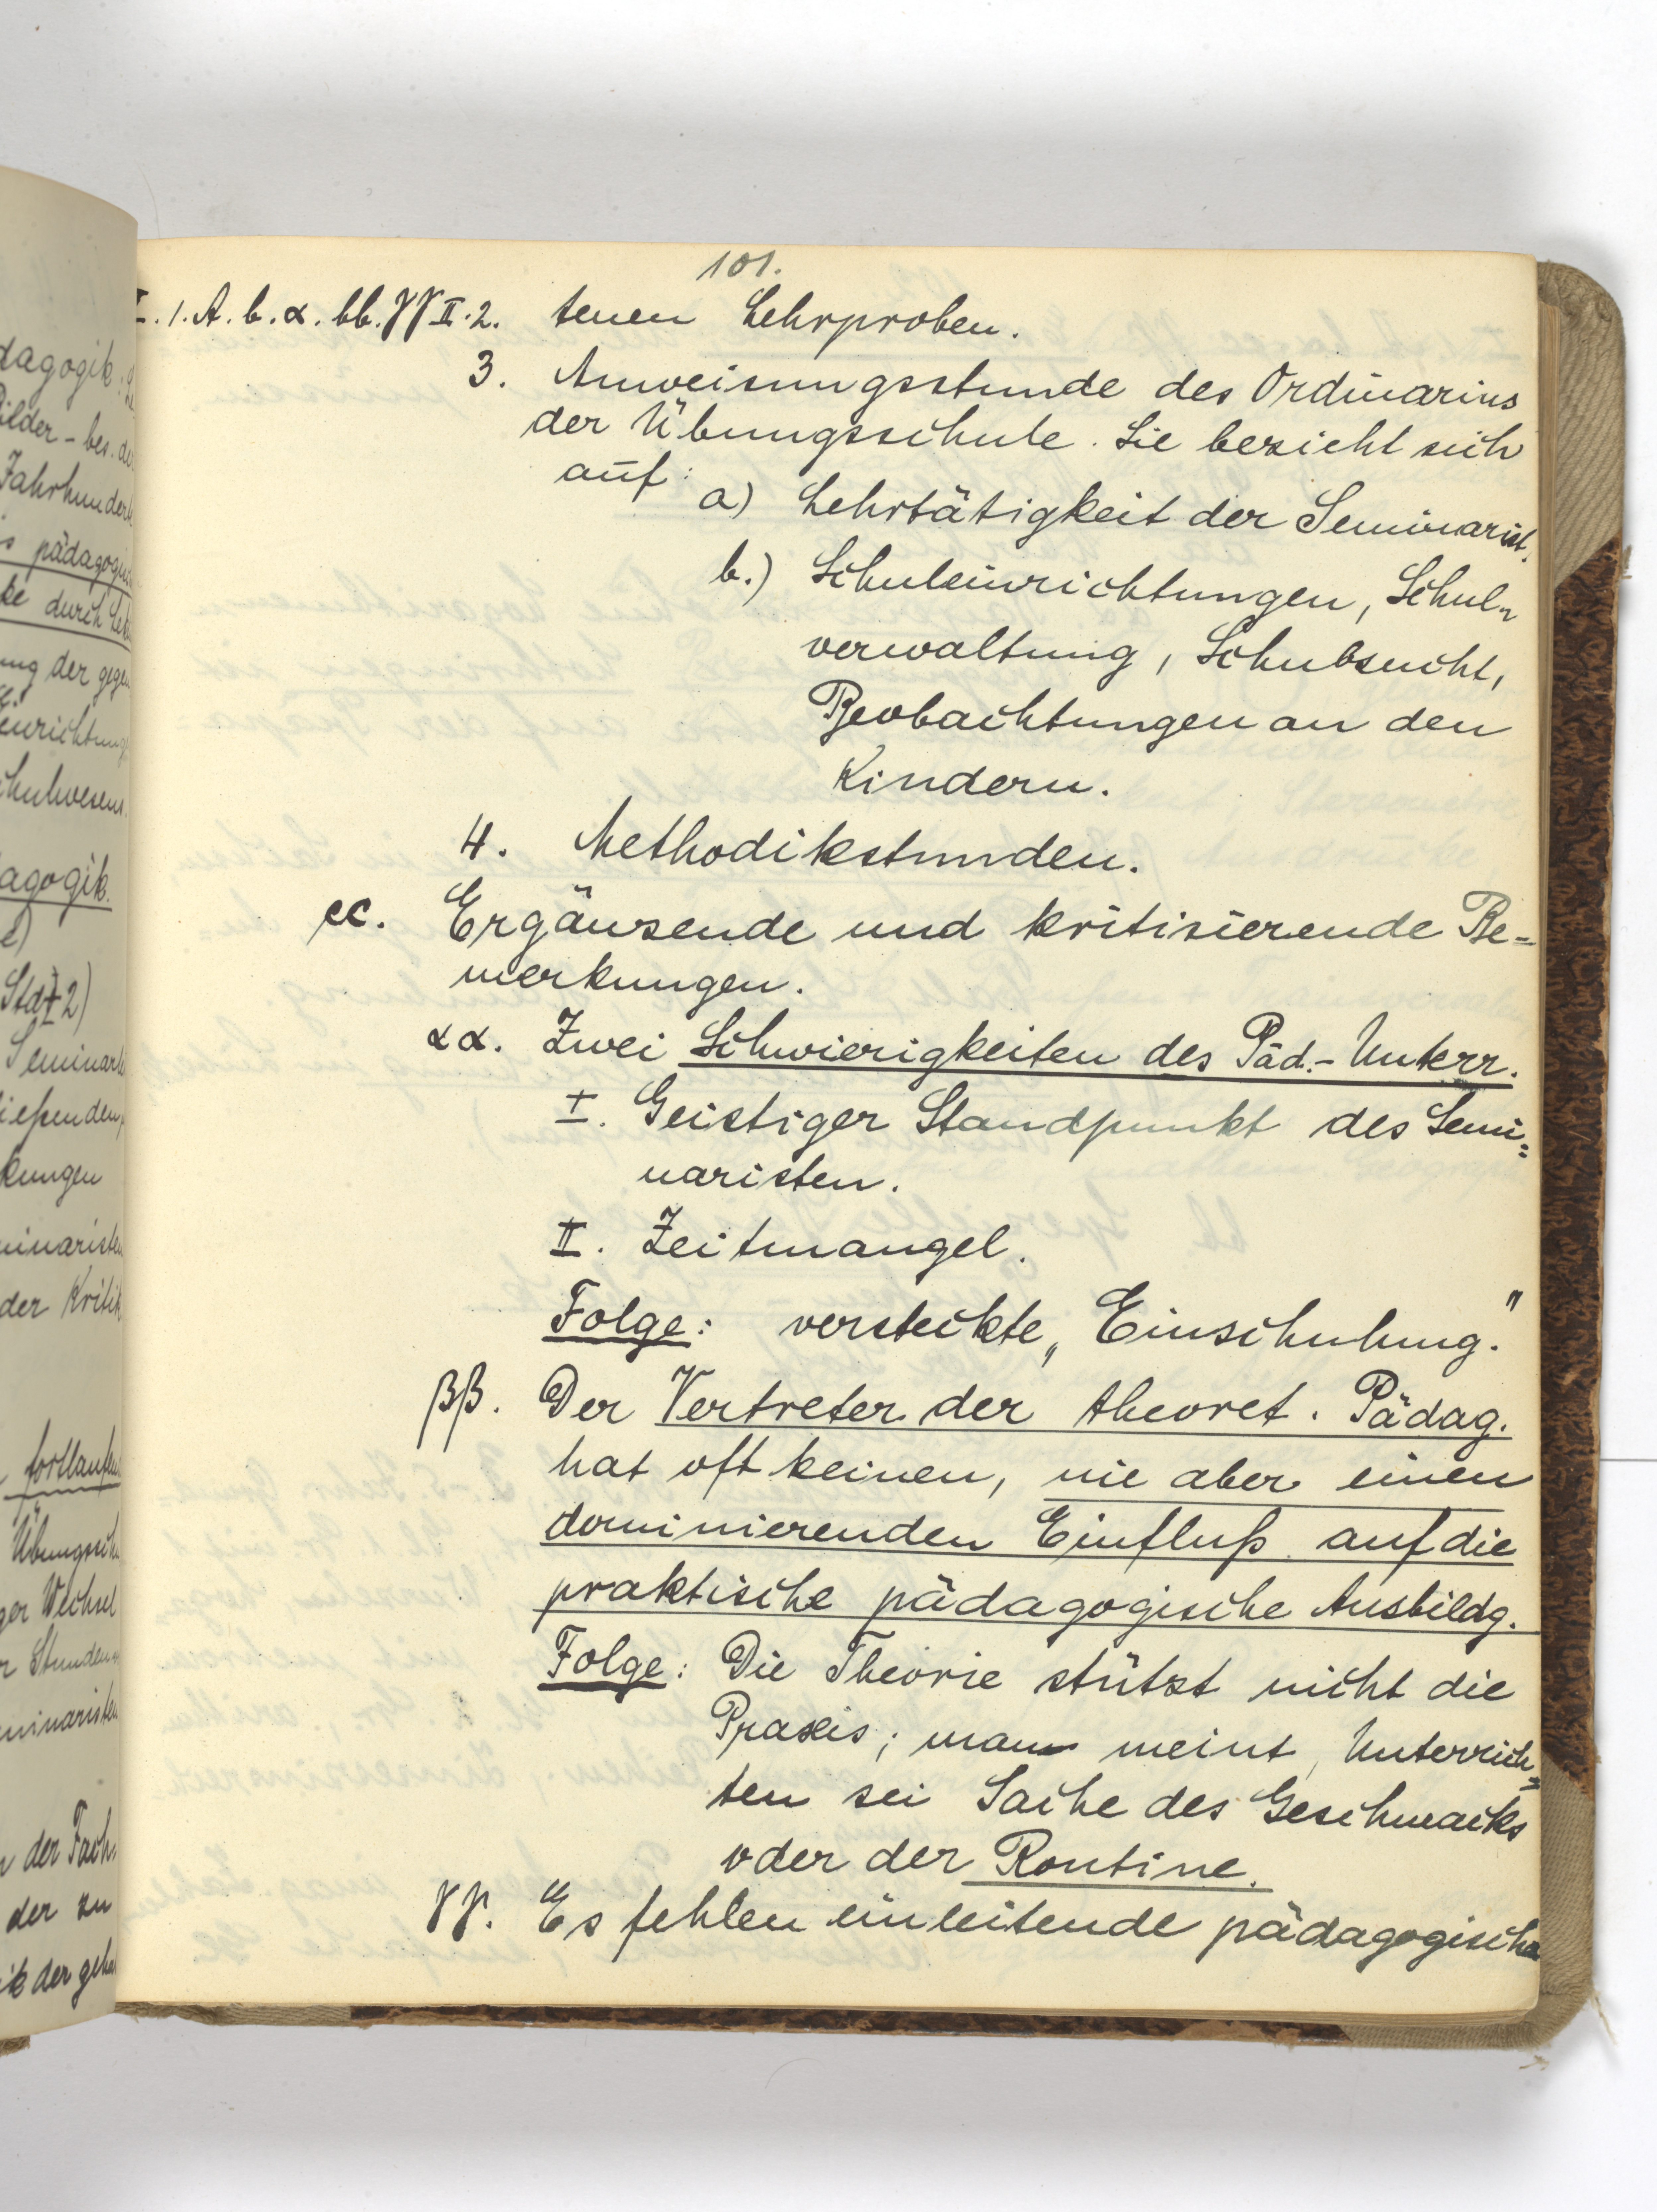 dagogik.
Bilder - bes. de
Jahrhundert
s pädagogisch
ke durch Leh
ung der gege
enrichtung
chulwesens.
agogik.
e)
Std 2)
Seminari
ießenden
kungen
inaristen
der Kritik
fortlaufen
Übungssch
ger Wechsel
r Stunden
minaristen
n der Fach.
der zu
ik der geha
101.
I. 1. A. b. α. bb. γγ II. 2. tenen Lehrproben.
3. Anweisungsstunde des Ordinarius
der Übungsschule. Sie bezieht sich
auf:
a) Lehrtätigkeit der Seminarist.
b.) Schuleinrichtungen, Schul-
verwaltung, Schulzucht,
Beobachtungen an den
Kindern.
4. Methodikstunden.
cc. Ergänzende und kritisierende Be-
merkungen.
αα. Zwei Schwierigkeiten des Päd.-Unterr.
I. Geistiger Standpunkt des Semi=
naristen.
II. Zeitmangel.
Folge: versteckte „Einschulung."
ββ. Der Vertreter der theoret. Pädag.
hat oft keinen, nie aber einen
dominierenden Einfluß auf die
praktische pädagogische Ausbildg.
Folge: Die Theorie stützt nicht die
Praxis; man meint, Unterrich=
ten sei Sache des Geschmacks
oder der Routine.
γγ. Es fehlen einleitende pädagogische